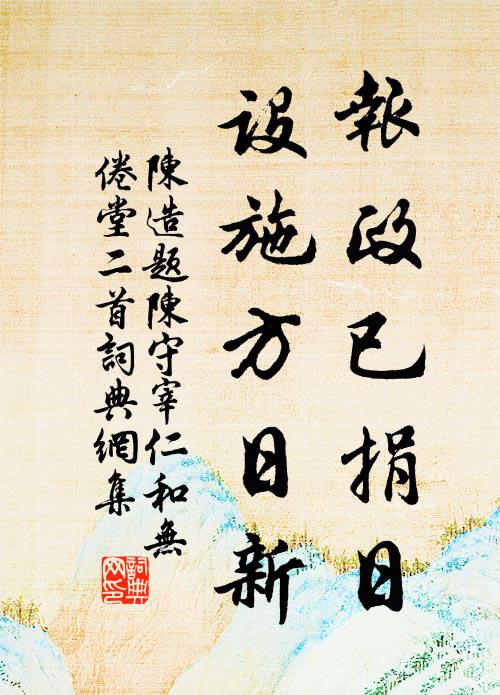 報政已捐日
設施方日新
陳造題陳守宰仁和無
倦堂二首詞典網集
詞典網印